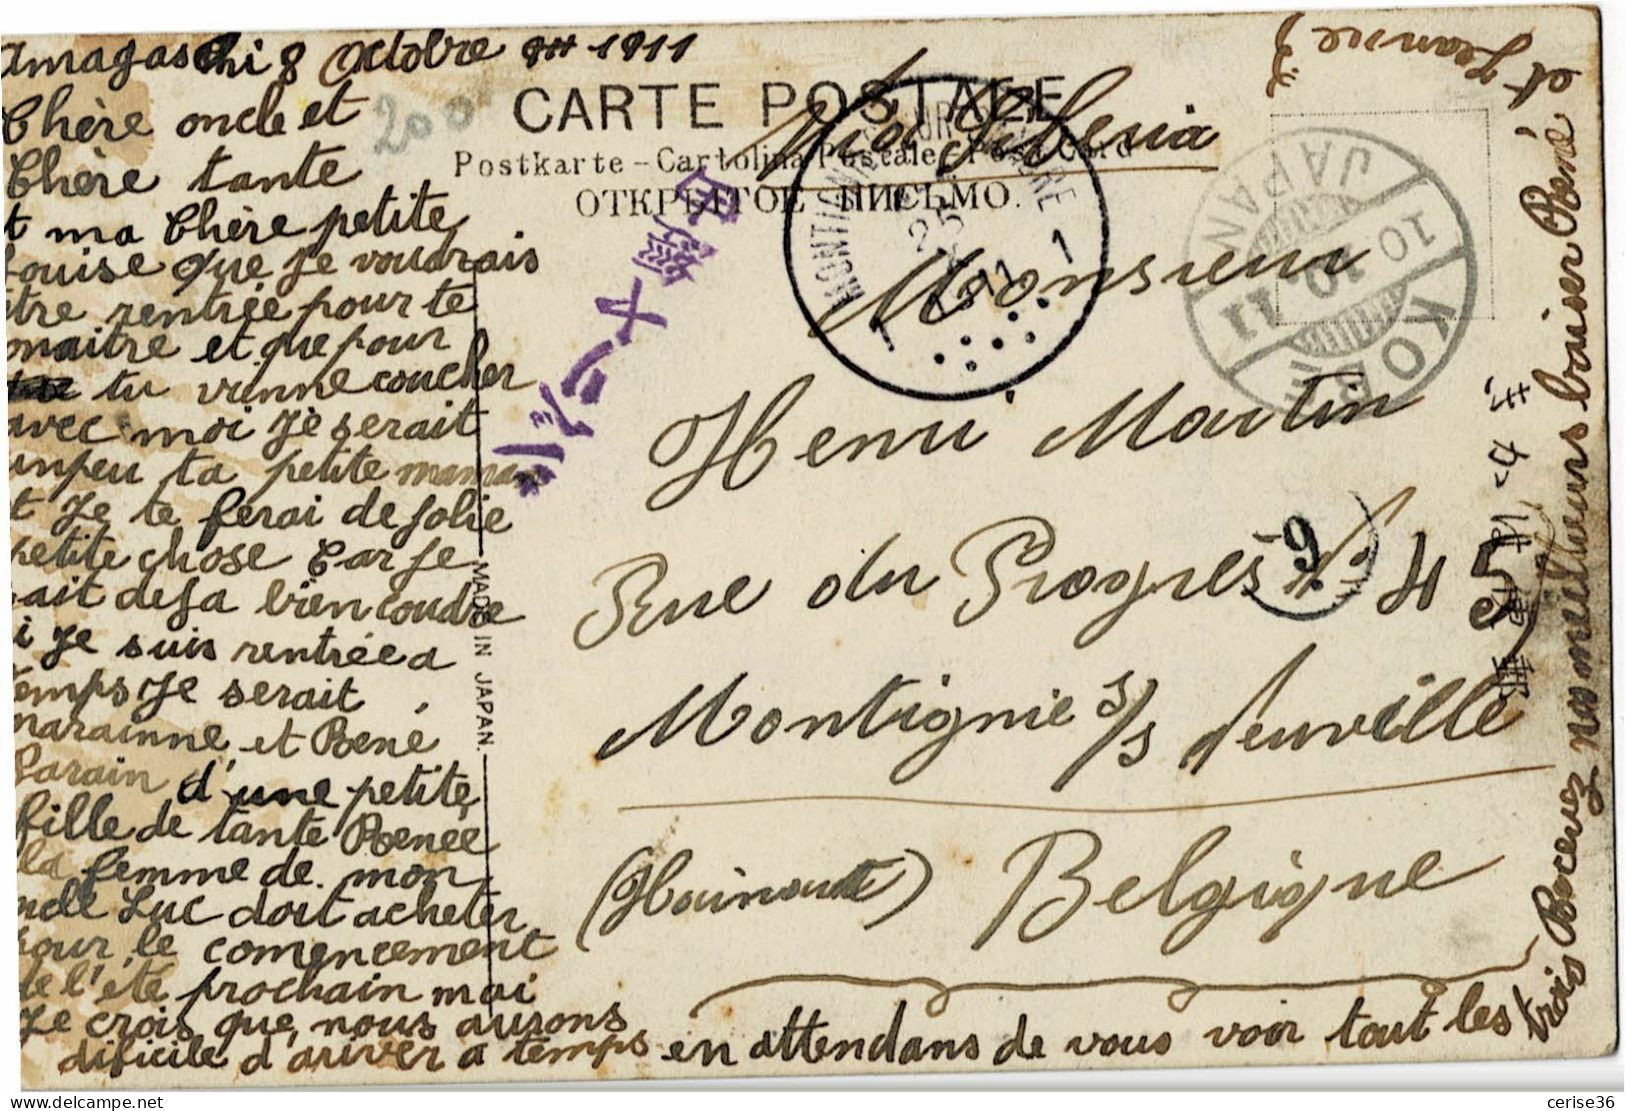 Amagaschi 8 Octobre 8tt 1911
Chère oncle et
Chère tante
et ma Chère petite
Louise que Je voudrais
être rentrée pour te
maitre et que pour
tu vienne coucher
avec moi Je serait
unpeu ta petite maman
et Je te ferai de Jolie
petite chose Car Je
sait deJa bien coudre
si Je suis rentrée a
temps Je serait
marainne et René
Parain d'une petite
fille de tante Renée
la femme de mon
oncle Luc doit acheter
pour le comencement
de l'été prochain moi
Je crois que nous aurons
dificile d'ariver a temps en attendans de vous voir tout les
trois Recevez nos meilleurs baiser René
et Jeanne
200
CARTE POSTALE
Postkarte – Cartolina Postale – Post Card
ОТКРЫТОЕ ПИСЬМО.
Via Siberia
MADE IN JAPAN.
Monsieur
Henri Martin
Rue du Progrès N° 45
Montignie s/s
(Hainaut) Belgique
MONTIGNIES-SUR-SAMBRE
25
11
1
JAPAN
10.10.11
KOBE
9
cerise36